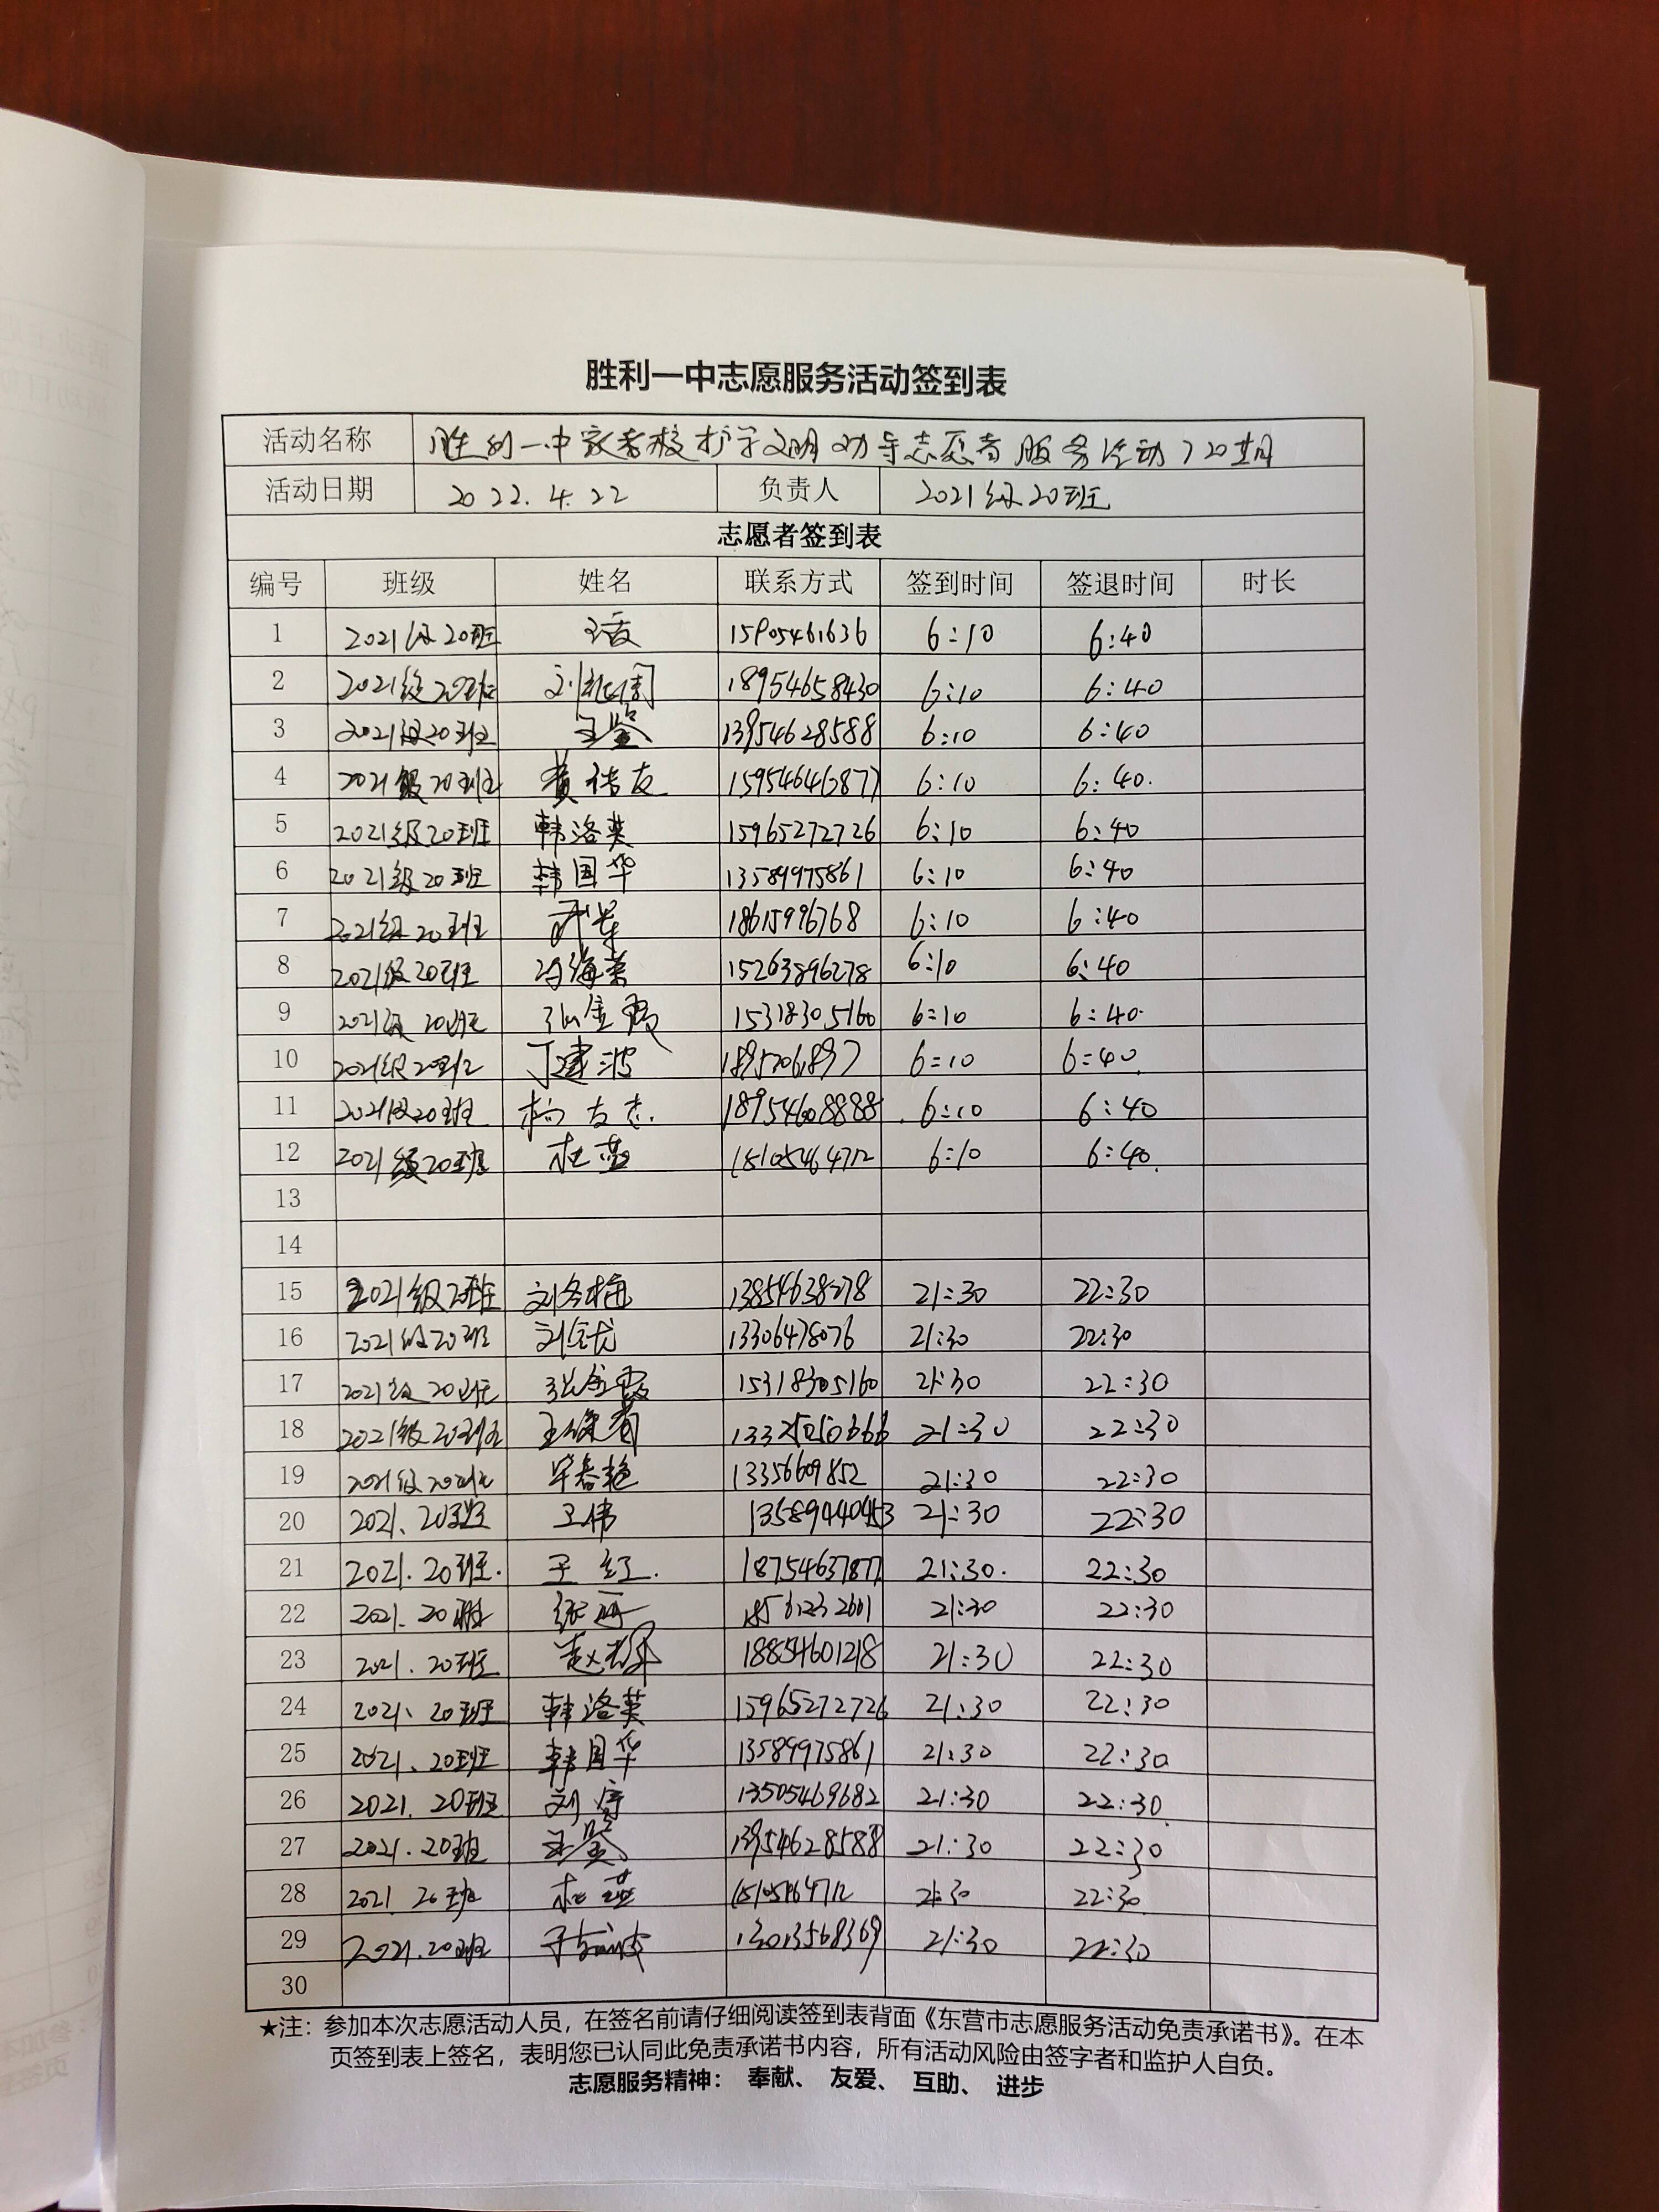 胜利一中志愿服务活动签到表
活动名称 胜利一中家长护学文明劝导志愿者服务活动120期
活动日期 2022.4.22 负责人 2021级20班
志愿者签到表
编号 班级 姓名 联系方式 签到时间 签退时间 时长
1 2021级20班 15905461636 6:10 6:40
2 2021级20班 18954658430 6:10 6:40
3 2021级20班 王鉴 13954628588 6:10 6:40
4 2021级20班 黄德友 6:10 6:40.
5 2021级20班 韩洛英 15965272726 6:10 6:40
6 2021级20班 韩国华 13589975861 6:10 6:40
7 2021级20班 18615996768 6:10 6:40
8 2021级20班 冯海荣 15263896278 6:10 6:40
9 2021级20班 张金霞 15318305160 6:10 6:40.
10 2021级20班 丁建波 6:10 6:40.
11 2021级20班 杨友志. 18954608888 6:10 6:40
12 2021级20班 杜燕 15105464712 6:10 6:40.
13
14
15 2021级20班 刘冬梅 13854638278 21:30 22:30
16 2021级20班 13306478076 21:30 22:30
17 2021级20班 张金霞 15318305160 21:30 22:30
18 2021级20班 21:30 22:30
19 2021级20班 13356609852 21:30 22:30
20 2021.20班 王伟 13589440453 21:30 22:30
21 2021.20班. 王红. 18754637877 21:30. 22:30
22 2021.20班 18561232601 21:30 22:30
23 2021.20班 18854601218 21:30 22:30
24 2021、20班 韩洛英 15965272726 21:30 22:30
25 2021.20班 韩国华 13589975861 21:30 22:30
26 2021.20班 13505469682 21:30 22:30
27 2021.20班 王鉴 13954628588 21:30 22:30
28 2021.20班 杜燕 15105464712 21:30 22:30
29 2021.20班 13013568369 21:30 22:30
30
★注：参加本次志愿活动人员，在签名前请仔细阅读签到表背面《东营市志愿服务活动免责承诺书》。在本
页签到表上签名，表明您已认同此免责承诺书内容，所有活动风险由签字者和监护人自负。
志愿服务精神： 奉献、 友爱、 互助、 进步